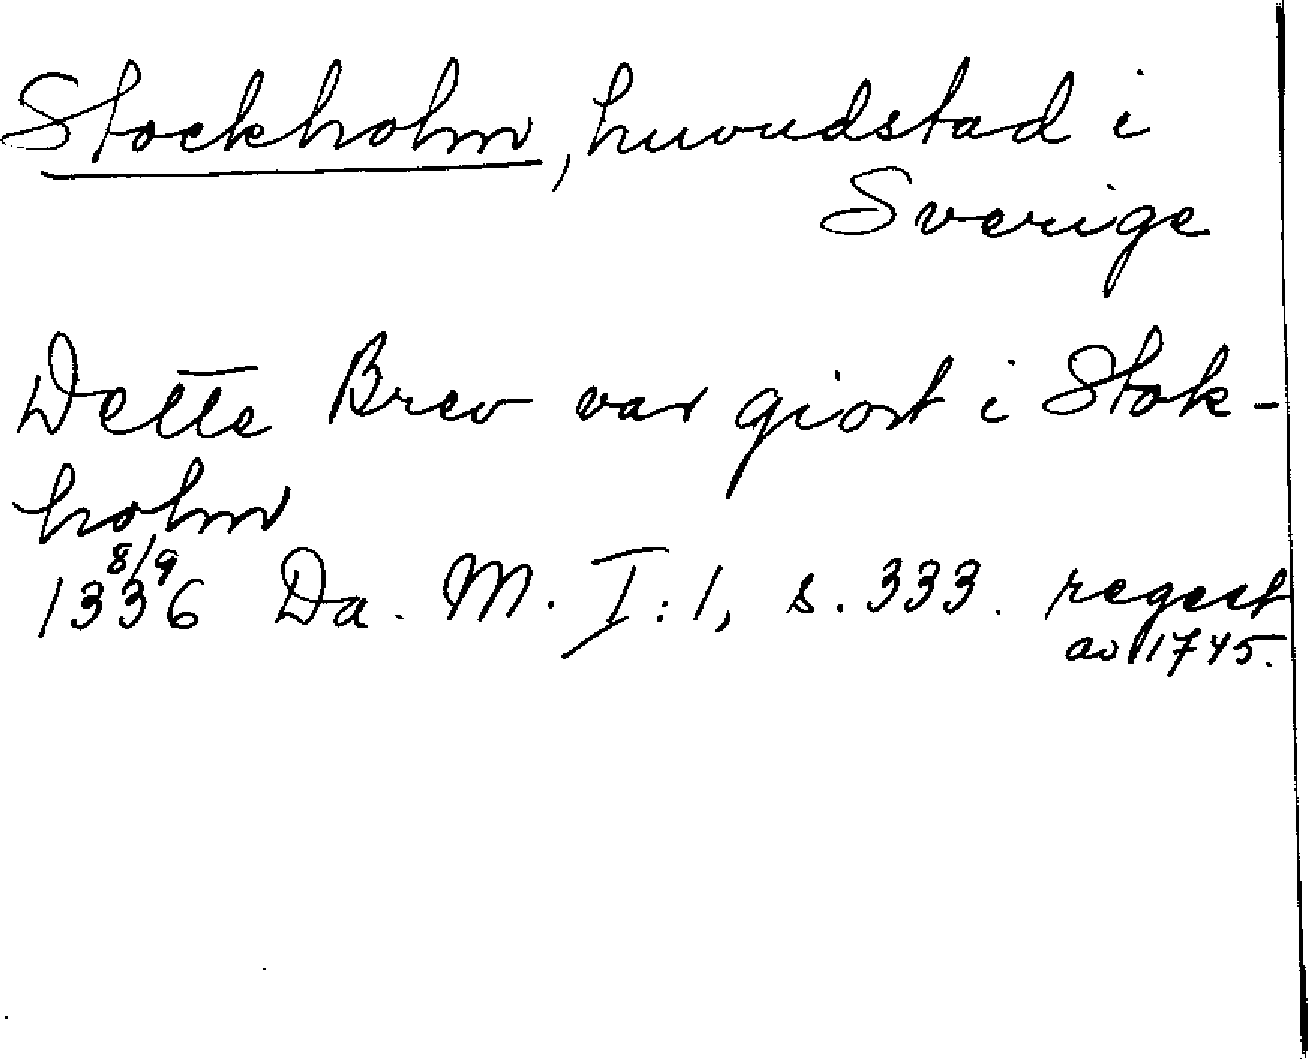 Stockholm, huvudstad i
Sverige
Dette Brev var giort i Stok-
holm
8/9
1336 Da. M. I:1, s. 333. regest
av 1745.